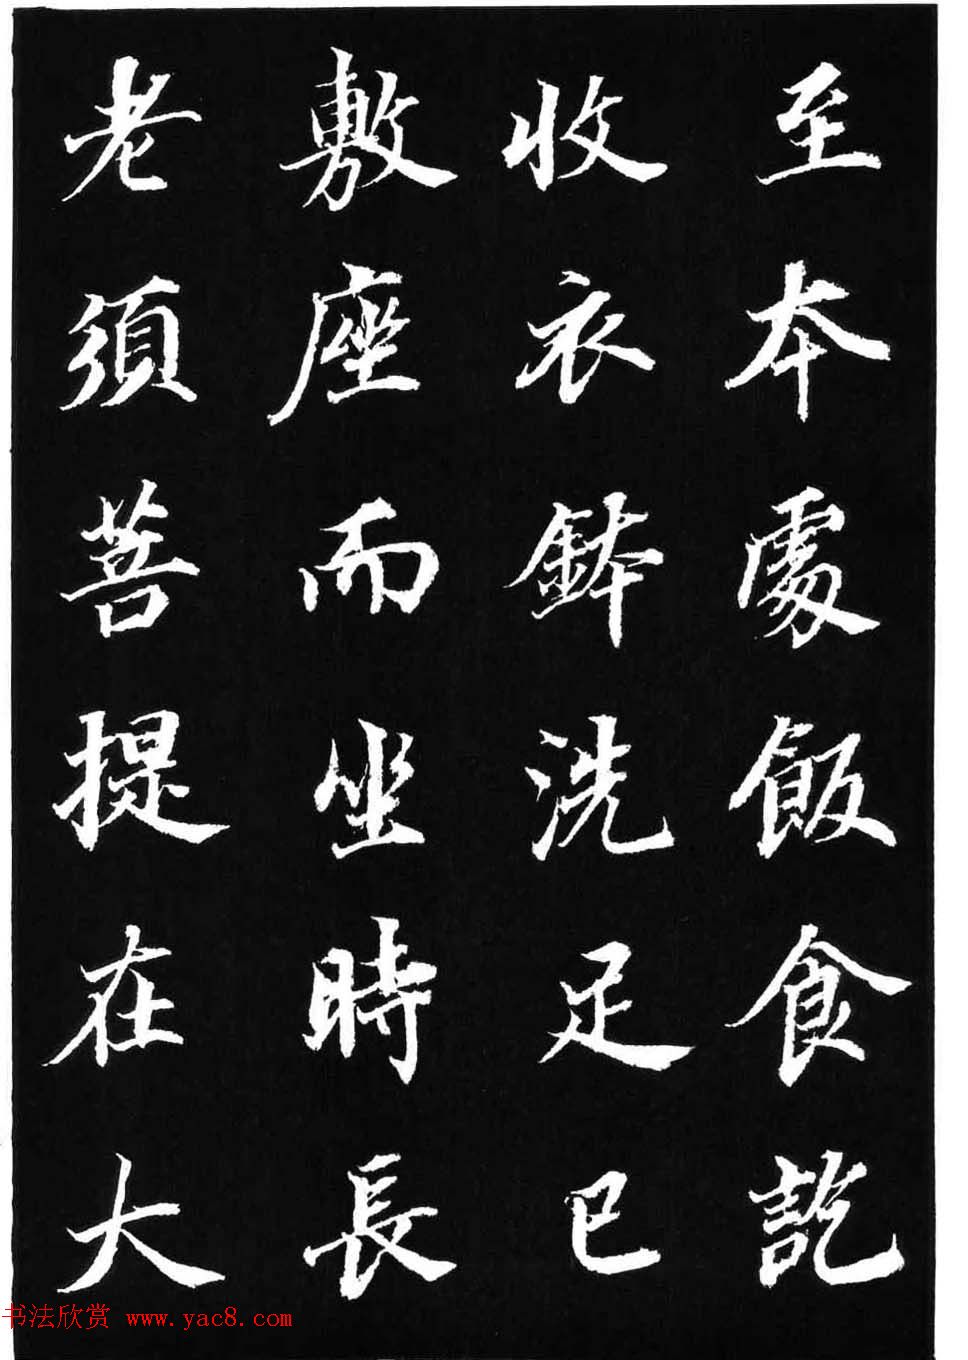 至本處飯食訖
收衣鉢洗足已
敷座而坐時長
老須菩提在大
书法欣赏 www.yac8.com